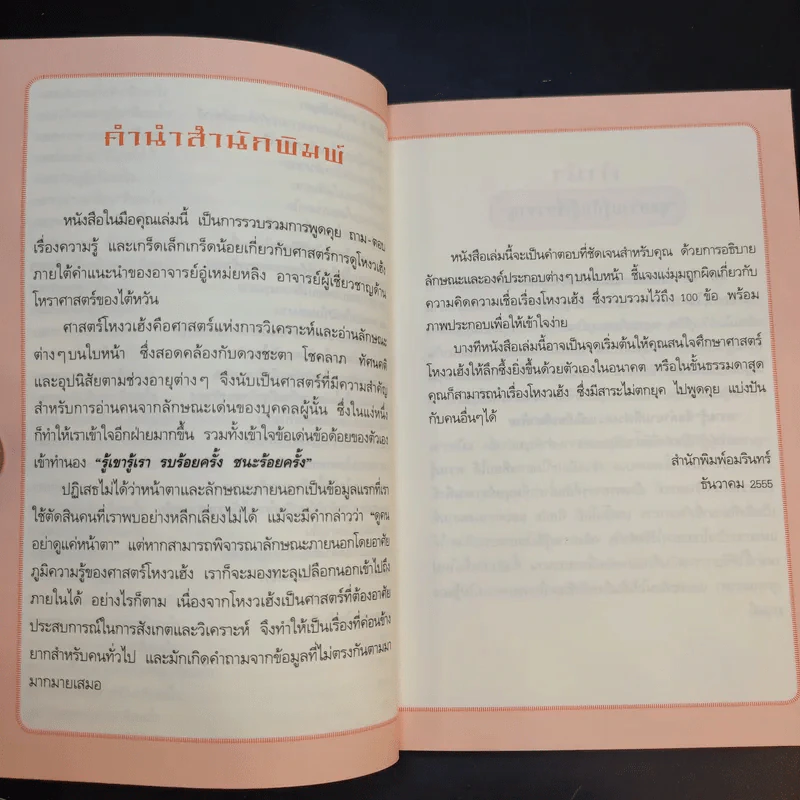 คำนำสำนักพิมพ์
หนังสือในมือคุณเล่มนี้ เป็นการรวบรวมการพูดคุย ถาม-ตอบ
เรื่องความรู้ และเกร็ดเล็กเกร็ดน้อยเกี่ยวกับศาสตร์การดูโหงวเฮ้ง
ภายใต้คำแนะนำของอาจารย์อู๋เหม่ยหลิง อาจารย์ผู้เชี่ยวชาญด้าน
โหราศาสตร์ของไต้หวัน
ศาสตร์โหงวเฮ้งคือศาสตร์แห่งการวิเคราะห์และอ่านลักษณะ
ต่างๆบนใบหน้า ซึ่งสอดคล้องกับดวงชะตา โชคลาภ ทัศนคติ
และอุปนิสัยตามช่วงอายุต่างๆ จึงนับเป็นศาสตร์ที่มีความสำคัญ
สำหรับการอ่านคนจากลักษณะเด่นของบุคคลผู้นั้น ซึ่งในแง่หนึ่ง
ก็ทำให้เราเข้าใจอีกฝ่ายมากขึ้น รวมทั้งเข้าใจข้อเด่นข้อด้อยของตัวเอง
เข้าทำนอง “รู้เขารู้เรา รบร้อยครั้ง ชนะร้อยครั้ง”
ปฏิเสธไม่ได้ว่าหน้าตาและลักษณะภายนอกเป็นข้อมูลแรกที่เรา
ใช้ตัดสินคนที่เราพบอย่างหลีกเลี่ยงไม่ได้ แม้จะมีคำกล่าวว่า “ดูคน
อย่าดูแค่หน้าตา” แต่หากสามารถพิจารณาลักษณะภายนอกโดยอาศัย
ภูมิความรู้ของศาสตร์โหงวเฮ้ง เราก็จะมองทะลุเปลือกนอกเข้าไปถึง
ภายในได้ อย่างไรก็ตาม เนื่องจากโหงวเฮ้งเป็นศาสตร์ที่ต้องอาศัย
ประสบการณ์ในการสังเกตและวิเคราะห์ จึงทำให้เป็นเรื่องที่ค่อนข้าง
ยากสำหรับคนทั่วไป และมักเกิดคำถามจากข้อมูลที่ไม่ตรงกันตามมา
มากมายเสมอ
หนังสือเล่มนี้จะเป็นคำตอบที่ชัดเจนสำหรับคุณ ด้วยการอธิบาย
ลักษณะและองค์ประกอบต่างๆบนใบหน้า ชี้แจงแง่มุมถูกผิดเกี่ยวกับ
ความคิดความเชื่อเรื่องโหงวเฮ้ง ซึ่งรวบรวมไว้ถึง 100 ข้อ พร้อม
ภาพประกอบเพื่อให้เข้าใจง่าย
บางทีหนังสือเล่มนี้อาจเป็นจุดเริ่มต้นให้คุณสนใจศึกษาศาสตร์
โหงวเฮ้งให้ลึกซึ้งยิ่งขึ้นด้วยตัวเองในอนาคต หรือในขั้นธรรมดาสุด
คุณก็สามารถนำเรื่องโหงวเฮ้ง ซึ่งมีสาระไม่ตกยุค ไปพูดคุย แบ่งปัน
กับคนอื่นๆได้
สำนักพิมพ์อมรินทร์
ธันวาคม 2555